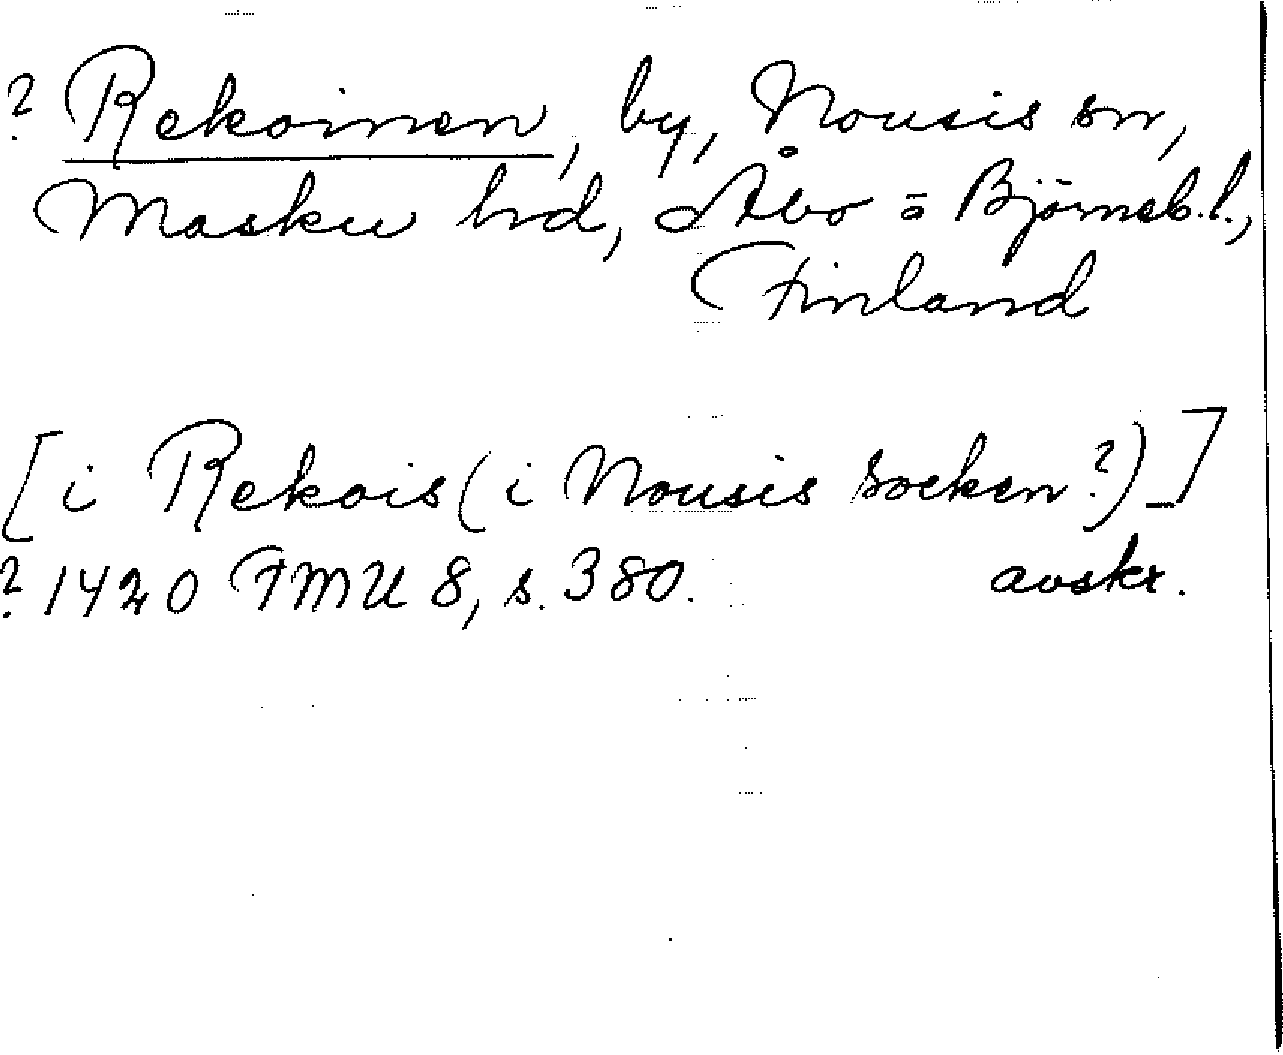 ? Rekoinen, by, Nousis sn,
Masku hd, Åbo o Björneb. l.,
Finland
[i Rekois (i Nousis socken?)]
? 1420 FMU 8, s. 380. avskr.